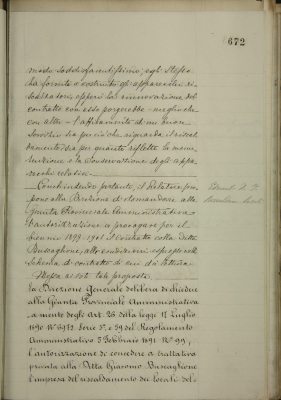 672
modo soddisfacentissimo; egli stesso
ha fornito e costruito gli apparecchi ri-
scaldatori, epperò la rinnovazione del
contratto con esso porgerebbe - meglio che
con altri - l'affidamento di un buon
servizio sia per ciò che riguarda il riscal-
damento, sia per quanto riflette la manu-
tenzione e la conservazione degli appa-
recchi relativi.
Conchiudendo pertanto, il Relatore pro-
pone alla Direzione di domandare alla
Giunta Provinciale Amministrativa
l'autorizzazione a prorogare per il
1899-1901 il contratto colla Ditta
Buscaglione, alle condizioni
schema di contratto di cui dà lettura.
Messa ai voti tale proposta
La Direzione Generale delibera di chiedere
alla Giunta Provinciale Amministrativa
a mente degli Art. 26 della legge 17 Luglio
1890 N° 6972 Serie 3ª, e 79 del Regolamento
Amministrativo 5 Febbraio 1891 N° 99,
l'autorizzazione di concedere a trattativa
privata alla Ditta Giacomo Buscaglione
l'impresa del riscaldamento dei locali del-